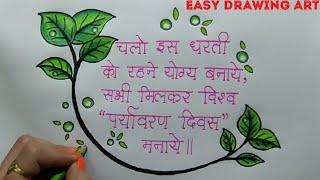 EASY DRAWING ART
चलो इस धरती
को रहने योग्य बनाये,
सभी मिलकर विश्व
“पर्यावरण दिवस”
मनाये॥